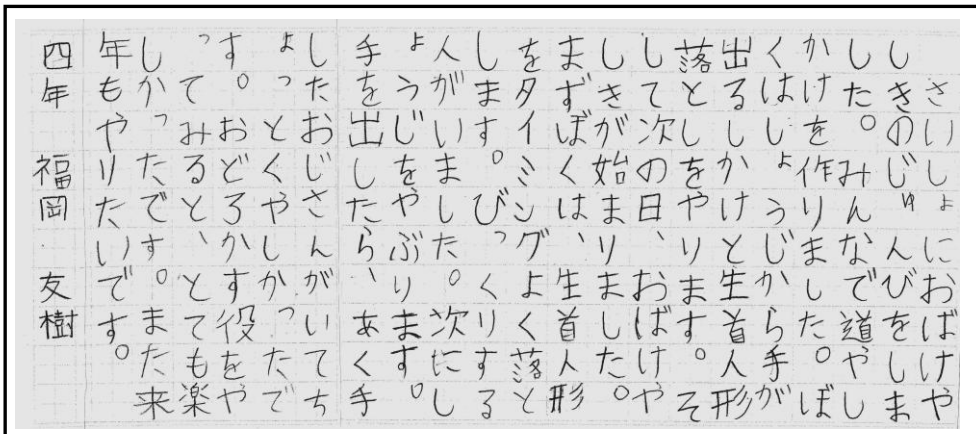 さいしょにおばけや
しきのじゅんびをしま
した。みんなで道やし
かけを作りました。ぼ
くはしょうじから手が
出るしかけと生首人形
落としをやります。そ
して次の日、おばけや
しきが始まりました。
まずぼくは、生首人形
をタイミングよく落と
します。びっくりする
人がいました。次にし
ょうじをやぶります。
手を出したら、あく手
したおじさんがいてち
ょっとくやしかったで
す。おどろかす役をや
ってみると、とても楽
しかったです。また来
年もやりたいです。
四年 福岡 友樹